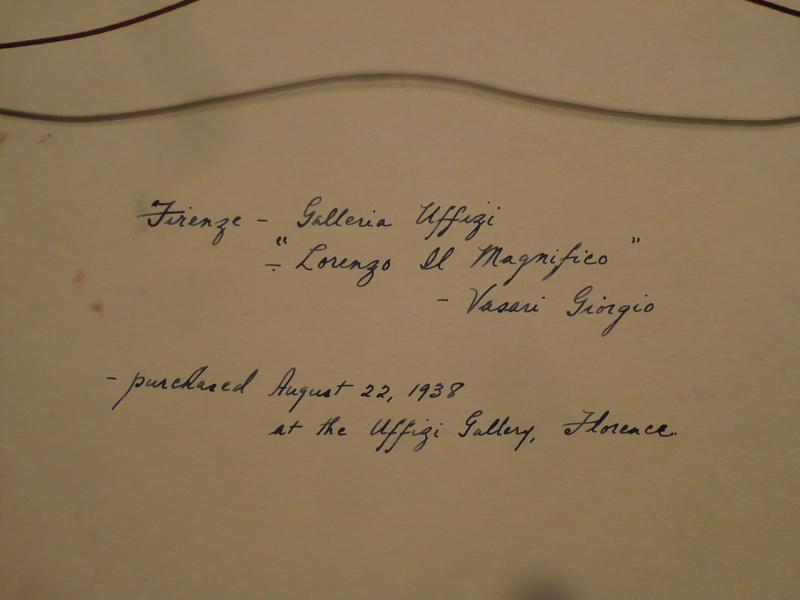 Firenze - Galleria Uffizi
- "Lorenzo Il Magnifico"
- Vasari Giorgio
- purchased August 22, 1938
at the Uffizi Gallery, Florence.